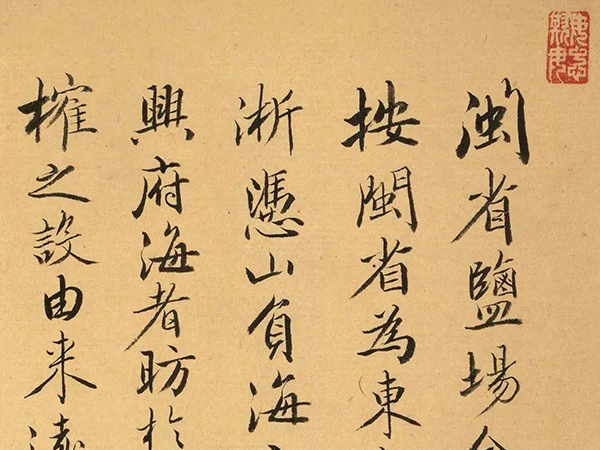 閩省鹽場
按閩省為東
浙憑山負海
興府海者昉於
榷之設由来遠